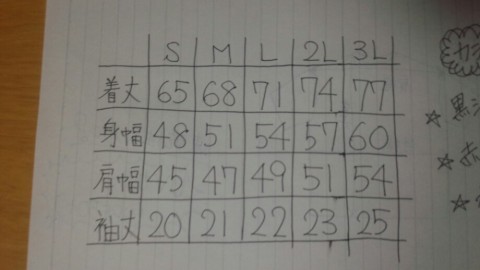 S M L 2L 3L
着丈 65 68 71 74 77
身幅 48 51 54 57 60
肩幅 45 47 49 51 54
袖丈 20 21 22 23 25
カラ
☆黒
☆赤
☆